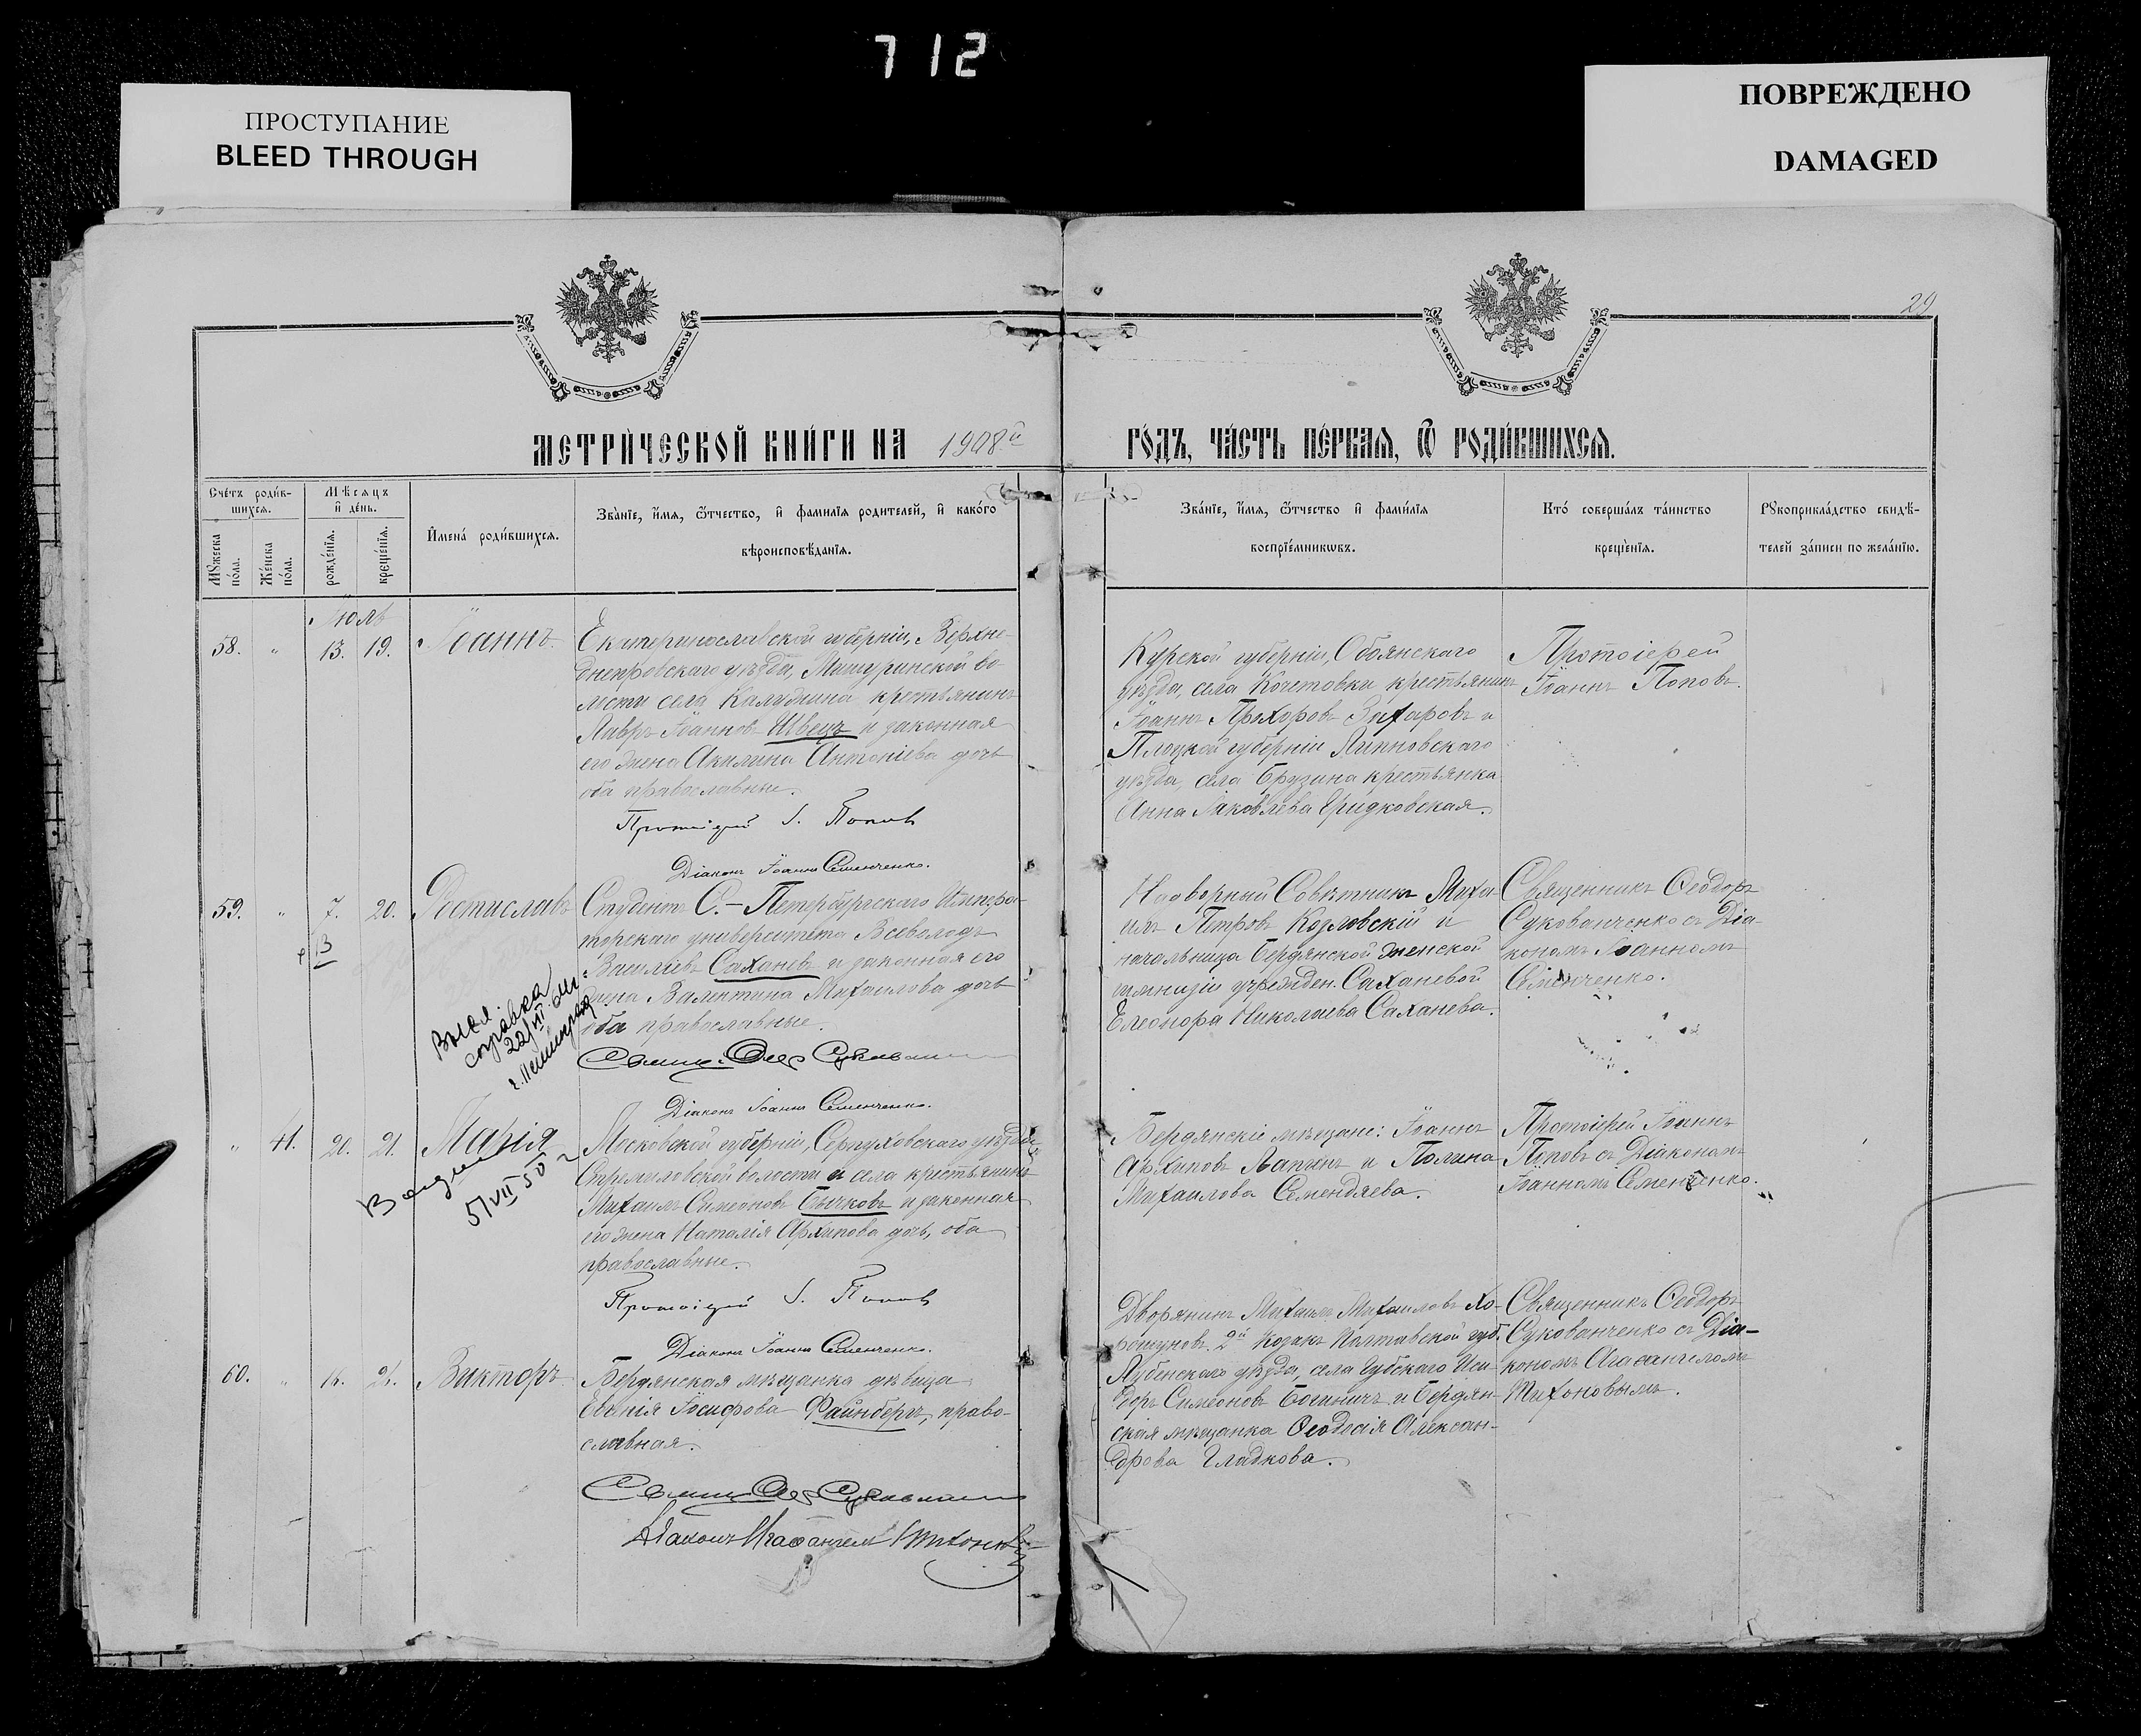 712
ПРОСТУПАНИЕ
BLEED THROUGH
ПОВРЕЖДЕНО
DAMAGED
29
МЕТРИ́ЧЕСКОЙ КНИ́ГИ НА 1908й
ГО́ДЪ, ЧА́СТЬ ПЕ́РВАѦ, Ѿ РОДИ́ВШИХСѦ.
Счétъ роди́в-
шихсѧ.
Мѣ́сѧцъ
и҆ де́нь.
Мꙋ́жеска
по́ла.
Же́нска
по́ла.
рожде́нїѧ.
креще́нїѧ.
И҆мена̀ роди́вшихсѧ.
Зва́нїе, и҆́мѧ, ѻ҆́тчество, и҆ фами́лїѧ роди́телей, и҆ како́гѡ
вѣроисповѣ́данїѧ.
Зва́нїе, и҆́мѧ, ѻ҆́тчество и҆ фами́лїѧ
воспрїе́мникѡвъ.
Кто̀ соверша́лъ та́инство
креще́нїѧ.
Рꙋкоприкла́дство свидѣ́-
телей за́писи по жела́нїю.
Іюль
58. " 13. 19. Іоаннъ.
Екатеринославской губерніи, Верхне-
днепровскаго уѣзда, Мишуринской во-
лости села Калужина крестьянинъ
Лавръ Іоанновъ Швецъ и законная
его жена Акилина Антоніева дочь
оба православные.
Протоіерей І. Поповъ
Діаконъ Іоаннъ Семенченко.
Курской губерніи, Обоянскаго
уѣзда, села Кочетовки крестьянинъ
Іоаннъ Прохоровъ Захаровъ и
Плоцкой губерніи Липновскаго
уѣзда, села Брузина крестьянка
Анна Іаковлева Гридковская.
Протоіерей
Іоаннъ Поповъ.
59. " 7. 20. Ростиславъ
Студентъ С.-Петербургскаго Импера-
торскаго университета Всеволодъ
Василіевъ Саханевъ и законная его
жена Валентина Михаилова дочь
оба православные.
Діаконъ Іоаннъ Семенченко.
справка
22/VII
Надворный Совѣтникъ Миха-
илъ Петровъ Козловскій и
начальница Бердянской женской
гимназіи учрежден. Саханевой
Елеонора Николаева Саханева.
Священникъ Ѳеодоръ
Сукованченко съ Діа-
кономъ Іоанномъ
Семенченко.
" 41. 20. 21. Марія
5/VII 50 г
Московской губерніи, Серпуховскаго уѣзда
Стремиловской волости и села крестьянинъ
Михаилъ Симеоновъ Бычковъ и законная
его жена Наталія Архипова дочь, оба
православные.
Протоіерей І. Поповъ
Діаконъ Іоаннъ Семенченко.
Бердянскіе мѣщане: Іоаннъ
Архиповъ Лапинъ и Полина
Михаилова Семендяева.
Протоіерей Іоаннъ
Поповъ съ Діакономъ
Іоанномъ Семенченко.
60. " 21. Викторъ
Бердянская мѣщанка дѣвица
Евгенія Іосифова Файнбергъ, право-
славная.
Діаконъ Агафангелъ Тихоновъ
Дворянинъ Михаилъ Михаиловъ Хо-
рошуновъ. 2й Козакъ Полтавской губ.
Лубенскаго уѣзда, села Губскаго Иси-
доръ Симеоновъ и Бердян-
ская мѣщанка Ѳеодосія Алексан-
дрова Гладкова.
Священникъ Ѳеодоръ
Сукованченко съ Діа-
кономъ Агафангеломъ
Тихоновымъ.